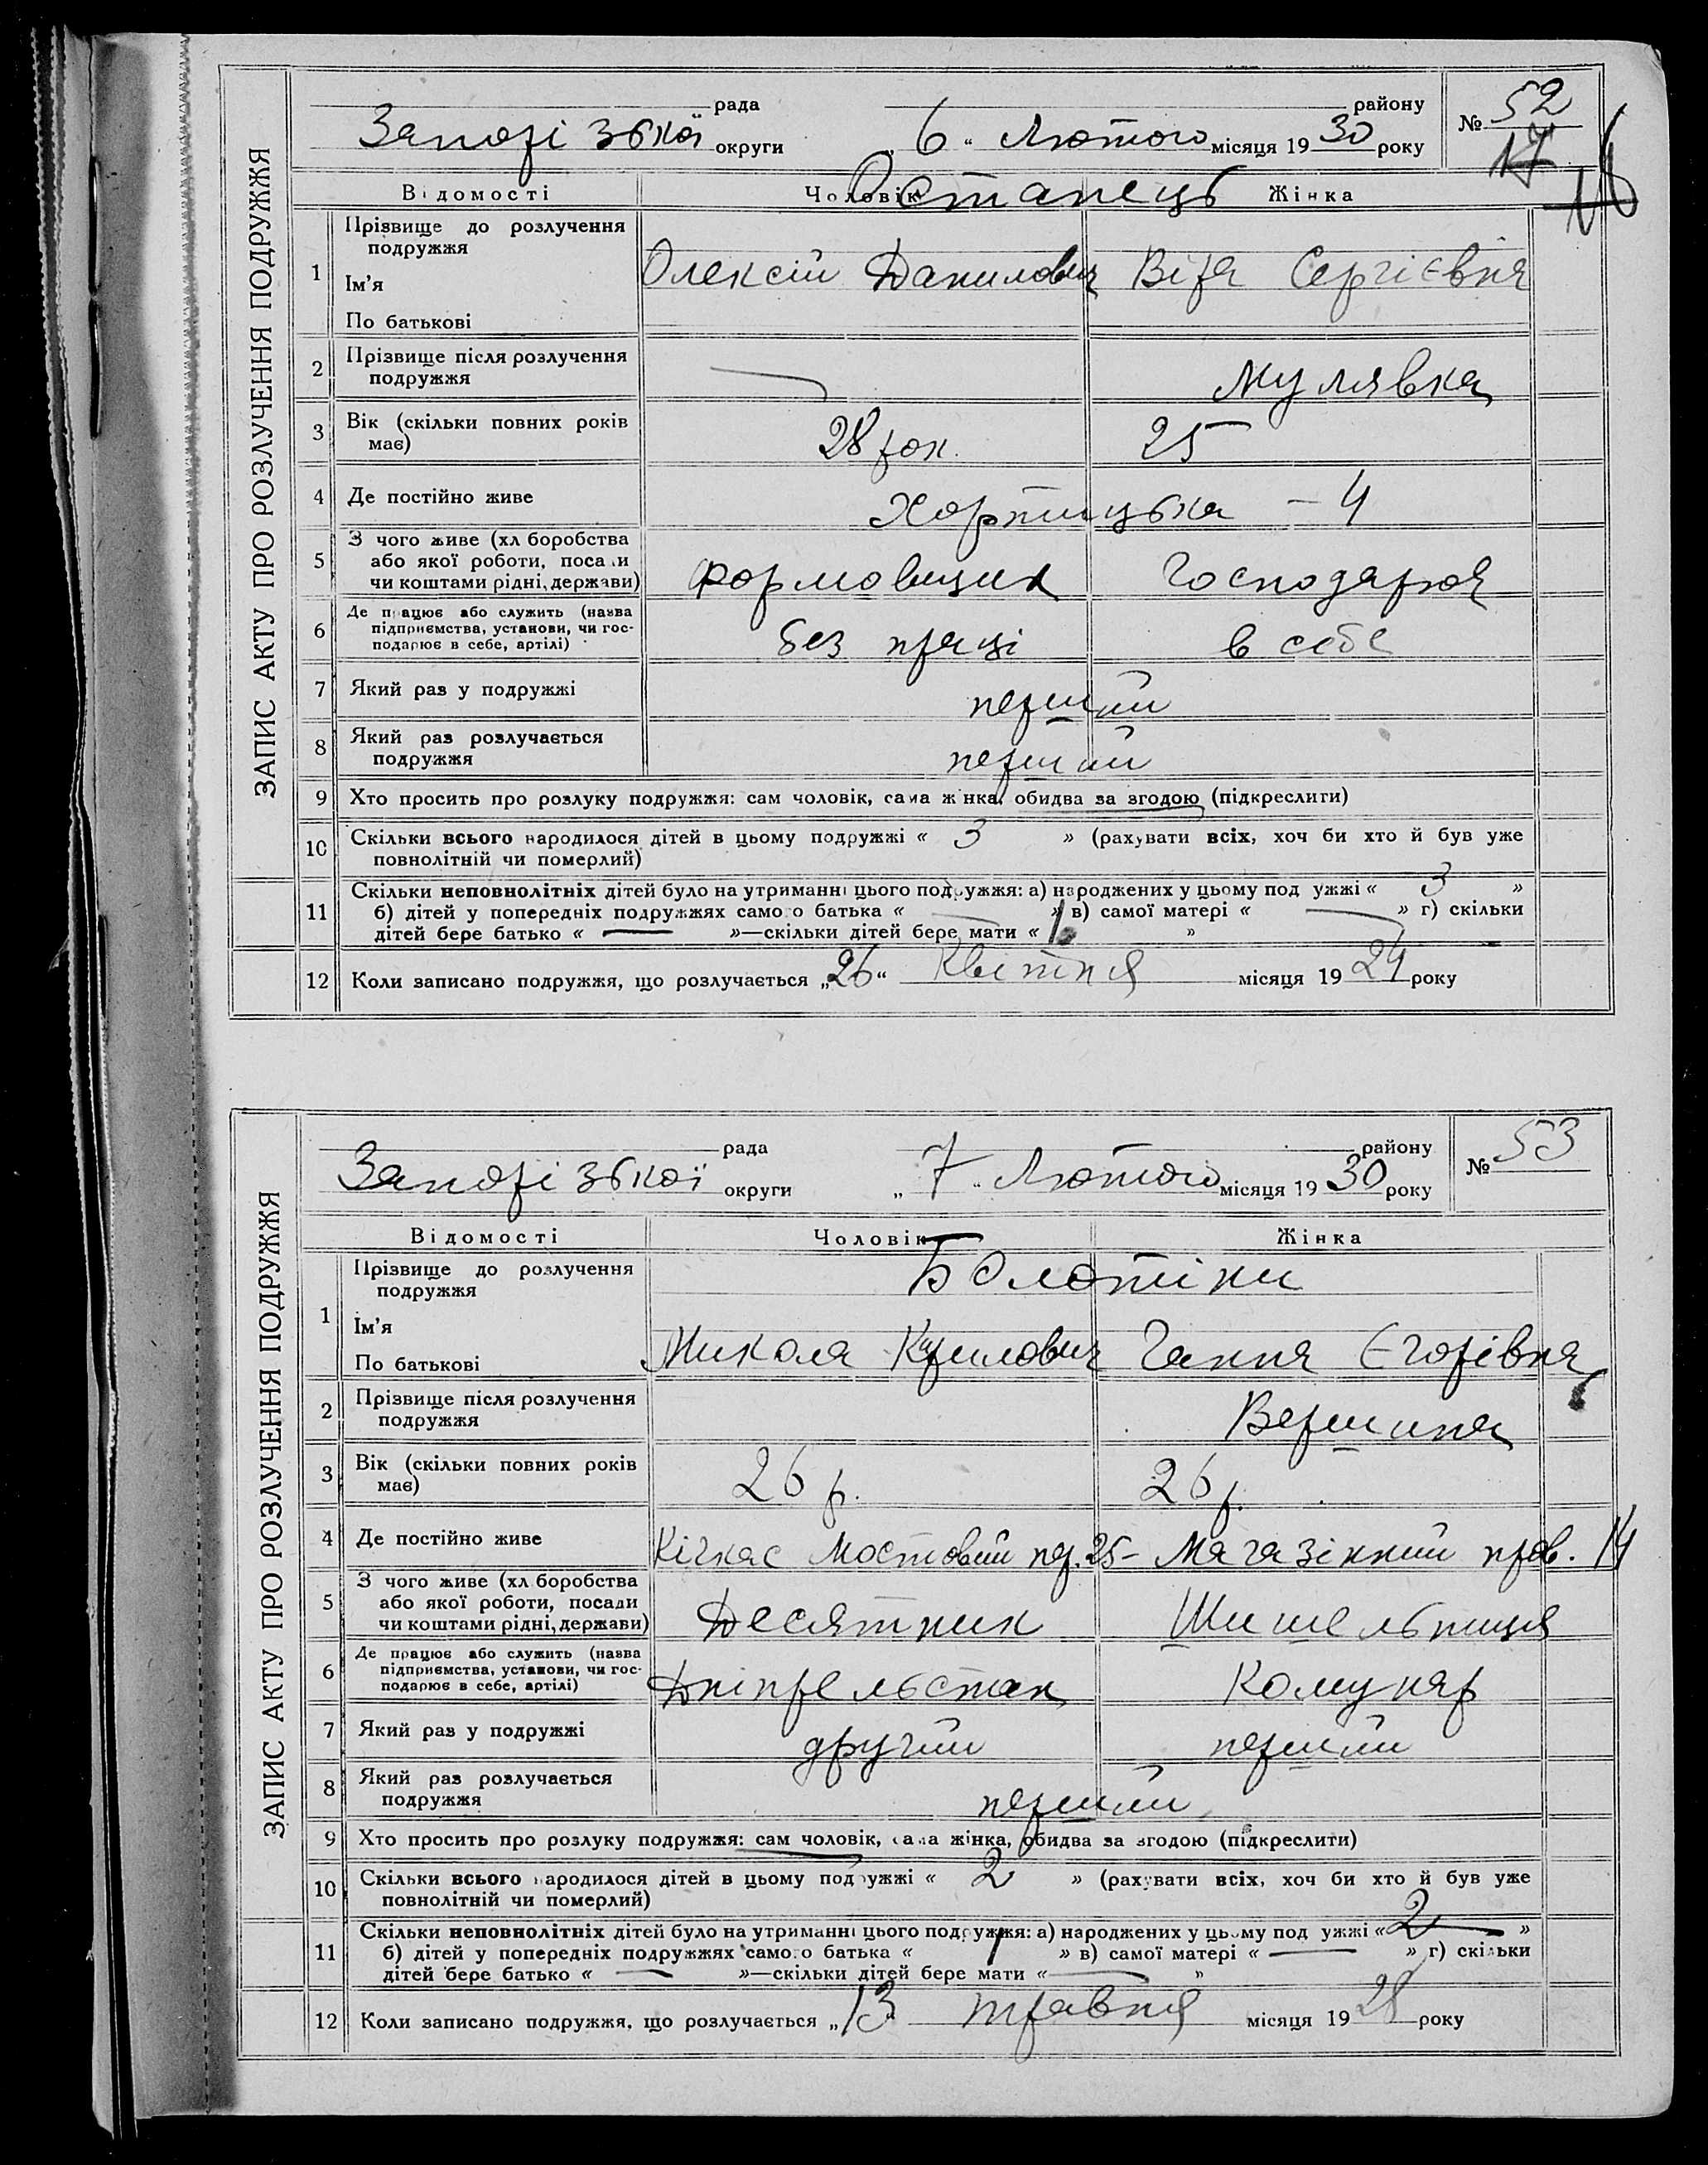 ЗАПИС АКТУ ПРО РОЗЛУЧЕННЯ ПОДРУЖЖЯ
рада району № 52
Запорізької округи „ 6 “ Лютого місяця 1930 року 17
16
Відомості Чоловік Жінка
Остапець
1 Прізвище до розлучення подружжя
Ім’я Олексій Данилович Віра Сергієвна
По батькові
2 Прізвище після розлучення подружжя — Мулявка
3 Вік (скільки повних років має) 28 рок. 25
4 Де постійно живе Хортицька – 4
5 З чого живе (хл боробства
або якої роботи, посади
чи коштами рідні, держави) формовщик Господарюя
6 Де працює або служить (назва
підприємства, установи, чи гос-
подарює в себе, артілі) без праці в себе
7 Який раз у подружжі перший
8 Який раз розлучається подружжя перший
9 Хто просить про розлуку подружжя: сам чоловік, сама жінка, обидва за згодою (підкреслити)
10 Скільки всього народилося дітей в цьому подружжі « 3 » (рахувати всіх, хоч би хто й був уже
повнолітній чи померлий)
11 Скільки неповнолітніх дітей було на утриманні цього подружжя: а) народжених у цьому подружжі « 3 »
б) дітей у попередніх подружжях самого батька « — » в) самої матері « — » г) скільки
дітей бере батько « — »—скільки дітей бере мати « »
12 Коли записано подружжя, що розлучається „26“ Квітня місяця 1924 року
ЗАПИС АКТУ ПРО РОЗЛУЧЕННЯ ПОДРУЖЖЯ
рада району № 53
Запорізької округи „ 7 “ Лютого місяця 1930 року
Відомості Чоловік Жінка
1 Прізвище до розлучення подружжя Болотіни
Ім’я
По батькові Микола Кирилович Ганна Єгорівна
2 Прізвище після розлучення подружжя Вершина
3 Вік (скільки повних років має) 26 р. 26 р.
4 Де постійно живе Кічкас Мостовий пер. 25 – Магазінний пров. 14
5 З чого живе (хл боробства
або якої роботи, посади
чи коштами рідні, держави) Десятник Шишельниця
6 Де працює або служить (назва
підприємства, установи, чи гос-
подарює в себе, артілі) Дніпрельстан Комунар
7 Який раз у подружжі другий перший
8 Який раз розлучається подружжя перший
9 Хто просить про розлуку подружжя: сам чоловік, сама жінка, обидва за згодою (підкреслити)
10 Скільки всього народилося дітей в цьому подружжі « 2 » (рахувати всіх, хоч би хто й був уже
повнолітній чи померлий)
11 Скільки неповнолітніх дітей було на утриманні цього подружжя: а) народжених у цьому подружжі « 2 »
б) дітей у попередніх подружжях самого батька « 1 » в) самої матері « — » г) скільки
дітей бере батько « — »—скільки дітей бере мати « — »
12 Коли записано подружжя, що розлучається „13 травня місяця 1928 року